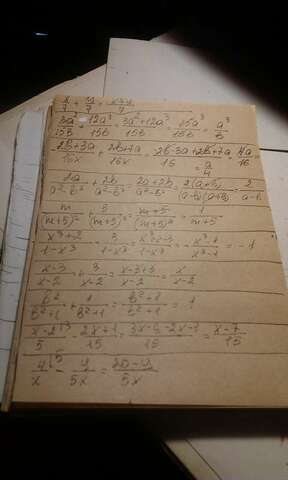 x/7 + y/7 = x+y/7
3a³/15b + 12a³/15b = 3a³+12a³/15b = 15a³/15b = a³/b
2b+7a/16x = 2b-3a+2b+7a/16 = 4a/16 = a/4
2a/a²-b² + 2b/a²-b² = 2a+2b/a²-b² = 2(a+b)/(a-b)(a+b) = 2/a-b
m/(m+5)² + 5/(m+5)² = m+5/(m+5)² = 1/m+5
x³+2/1-x³ - 3/1-x³ = x³+2-3/1-x³ = x³-1/x³-1 = -1
x-3/x-2 + 3/x-2 = x-3+3/x-2 = x/x-2
b²/b²+1 + 1/b²+1 = b²+1/b²+1 = 1
x-2/5 - 2x+1/15 = 3x-6-2x-1/15 = x-7/15
4/x - y/5x = 20-y/5x